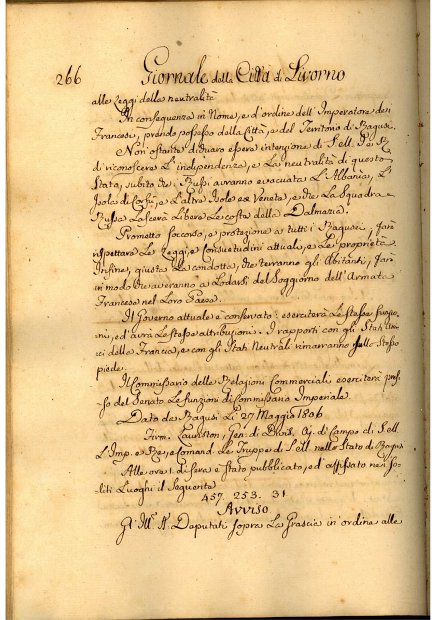 266 Giornale della Città di Livorno
alle Leggi della neutralità
In conseguenza in Nome, e d'ordine dell'Imperatore dei
Francesi, prendo possesso della Città, e del Territorio di Ragusi.
Non ostante dichiaro essere intenzione di S. M. I. e R.
di riconoscere L'indipendenza, e La neutralità di questo
Stato, subito che i Russi avranno evacuata L'Albania, L'
Isola di Corfù, e L'altre Isole ex Venete, e che La Squadra
Russa Lascerà Libere Le coste della Dalmazia.
Prometto soccorso, e protezione a tutti i Ragusei, farò
rispettare Le Leggi, e Consuetudini attuale, e Le proprietà
Infine, giusta La condotta, che terranno gli Abitanti, farò
in modo che averanno a Lodarsi del Soggiorno dell'Armata
Francese nel Loro Paese.
Il Governo attuale è conservato: eserciterà Le stesse funzio-
ni, ed avrà Le stesse attribuzioni. I rapporti con gli Stati
ci della Francia, e con gli Stati Neutrali rimarranno sullo Stesso
piede.
Il Commissario delle Relazioni Commerciali eserciterà pres-
so del Senato Le funzioni di Commissario Imperiale.
Dato da Ragusi Li 27 Maggio 1806
Firm. Lauriston, Gen. di Divis. Aj. di Campo di S. M.
L'Imp. e Re, e Comand. Le Truppe di S. M. nello Stato di Ragusi
Alle ore 1. di sera è stato pubblicato, ed affissato nei So-
liti Luoghi il Seguente
457. 253. 31
Avviso
Gl' Ill. SS. Deputati sopra La Grascia in ordine alle